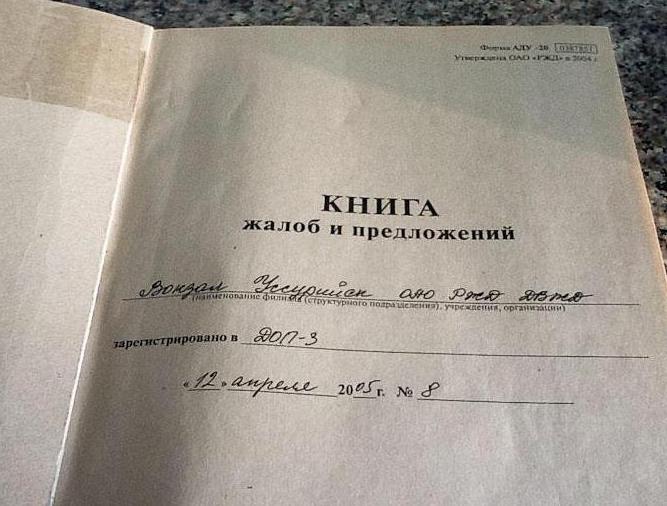 Форма АДУ -20 0387851
Утверждена ОАО «РЖД» в 2004 г.
КНИГА
жалоб и предложений
Вокзал Уссурийск ОАО РЖД ДВЖД
(наименование филиала (структурного подразделения), учреждения, организации)
зарегистрировано в ДОП-3
«12» апреля 2005 г. № 8